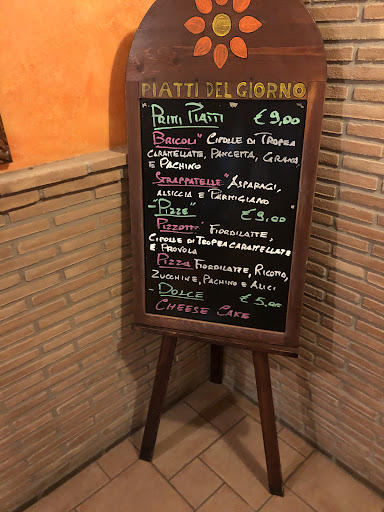 PIATTI DEL GIORNO
"PRIMI PIATTI € 9,00
BRICOLI" CIPOLLE DI TROPEA
CARAMELLATE, PANCETTA, GRANA,
E PACHINO
STRAPPATELLE" ASPARAGI,
ALSICCIA E PARMIGIANO
-"PIZZE" € 9,00
PIZZOTTO FIORDILATTE,
CIPOLLE DI TROPEA CARAMELLATE
E PROVOLA
PIZZA FIORDILATTE, RICOTTA,
ZUCCHINE, PACHINO E ALICI
-DOLCE € 5,00
CHEESE CAKE